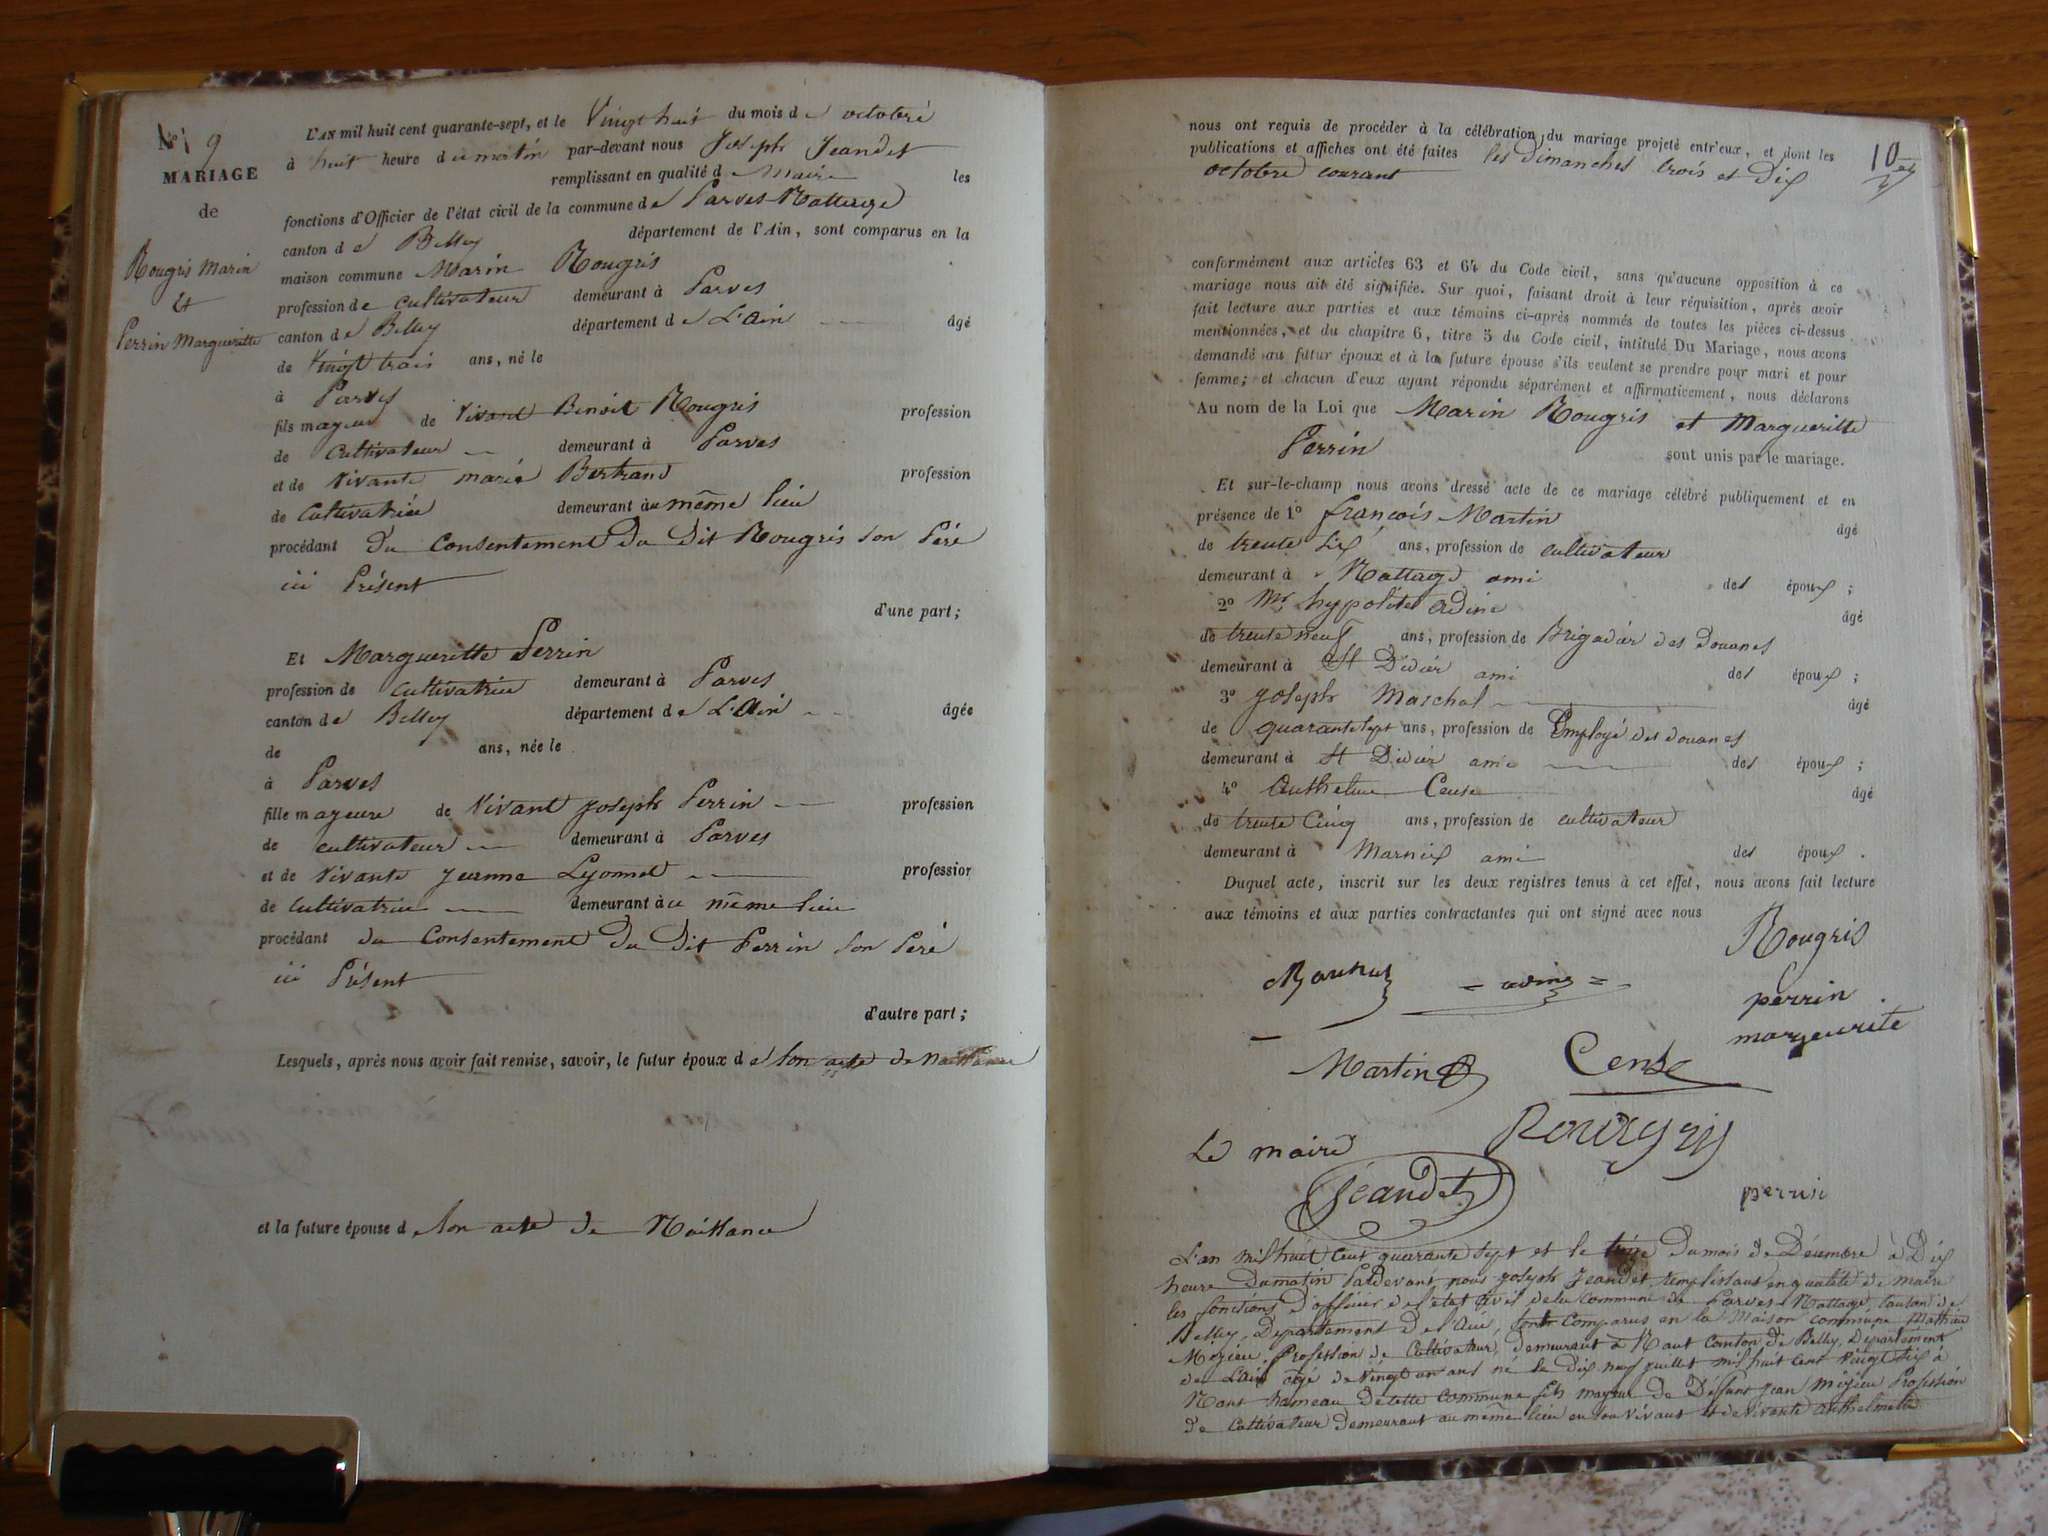 N° 9
MARIAGE
de
Rougris Marin
Et
Perrin Margueritte
L'AN mil huit cent quarante-sept, et le Vingt huit du mois de octobre
à huit heure du matin par-devant nous Joseph Jeandet
remplissant en qualité de Maire les
fonctions d'Officier de l'état civil de la commune de Parves-Nattage
canton de Belley département de l'Ain, sont comparus en la
maison commune Marin Rougris
profession de cultivateur demeurant à Parves
canton de Belley département de L'Ain âgé
de vingt trois ans, né le
à Parves
fils mageur de vivant Benoit Rougris profession
de Cultivateur demeurant à Parves
et de vivante marie Bertrand profession
de Cultivatrice demeurant au même lieu
procédant du Consentement Du Dit Rougris son Péré
ici Présent
d'une part;
Et Margueritte Perrin
profession de cultivatrice demeurant à Parves
canton de Belley département de L'Ain âgée
de ans, née le
à Parves
fille mageure de vivant joseph Perrin profession
de cultivateur demeurant à Parves
et de vivante jeanne Lyonnet profession
de Cultivatrice demeurant au même lieu
procédant du Consentement Du Dit Perrin son Péré
ici Présent
d'autre part;
Lesquels, après nous avoir fait remise, savoir, le futur époux de son acte de naissance
et la future épouse d son acte de Naissance
10
nous ont requis de procéder à la célébration du mariage projeté entr'eux, et dont les
publications et affiches ont été faites les Dimanches trois et Dix
octobre courant
conformément aux articles 63 et 64 du Code civil, sans qu'aucune opposition à ce
mariage nous ait été signifiée. Sur quoi, faisant droit à leur réquisition, après avoir
fait lecture aux parties et aux témoins ci-après nommés de toutes les pièces ci-dessus
mentionnées, et du chapitre 6, titre 5 du Code civil, intitulé Du Mariage, nous avons
demandé au futur époux et à la future épouse s'ils veulent se prendre pour mari et pour
femme; et chacun d'eux ayant répondu séparément et affirmativement, nous déclarons
Au nom de la Loi que Marin Rougris et Marguerite
Perrin sont unis par le mariage.
Et sur-le-champ nous avons dressé acte de ce mariage célébré publiquement et en
présence de 1° françois Martin âgé
de trente six ans, profession de cultivateur
demeurant à Nattage ami des époux;
2° Mr hypolite adine âgé
de trente neuf ans, profession de Brigadier des Douanes
demeurant à St Didier ami des époux;
3° joseph Maschal âgé
de quarante sept ans, profession de Employé des douanes
demeurant à St Didier ami des époux;
4° Anthelme Cense âgé
de trente cinq ans, profession de cultivateur
demeurant à Marnix ami des époux.
Duquel acte, inscrit sur les deux registres tenus à cet effet, nous avons fait lecture
aux témoins et aux parties contractantes qui ont signé avec nous
Rougris
= adine =
perrin
margeurite
Martin
Cense
Le maire
Jeandet
L'an mil huit cent quarante sept et le treize Du mois de Décembre à Dix
heure Du matin Pardevant nous joseph Jeandet remplissant en qualité de maire
les fonctions d'officier de l'état civil de la commune de Parves-Nattage, Canton de
Belley, Departement de l'Ain, sont Comparus en la Maison commune Mathieu
Mojieu, Profession de Cultivateur, demeurant à Nant Canton de Belley, Departement
de L'Ain agé de vingt un ans né le Dix neuf juillet mil huit cent vingt six à
Nant hameau de cette commune fils mageur de Deffunt jean Mojieu Profession
de Cultivateur demeurant au même lieu en son vivant et de vivante anthelmette